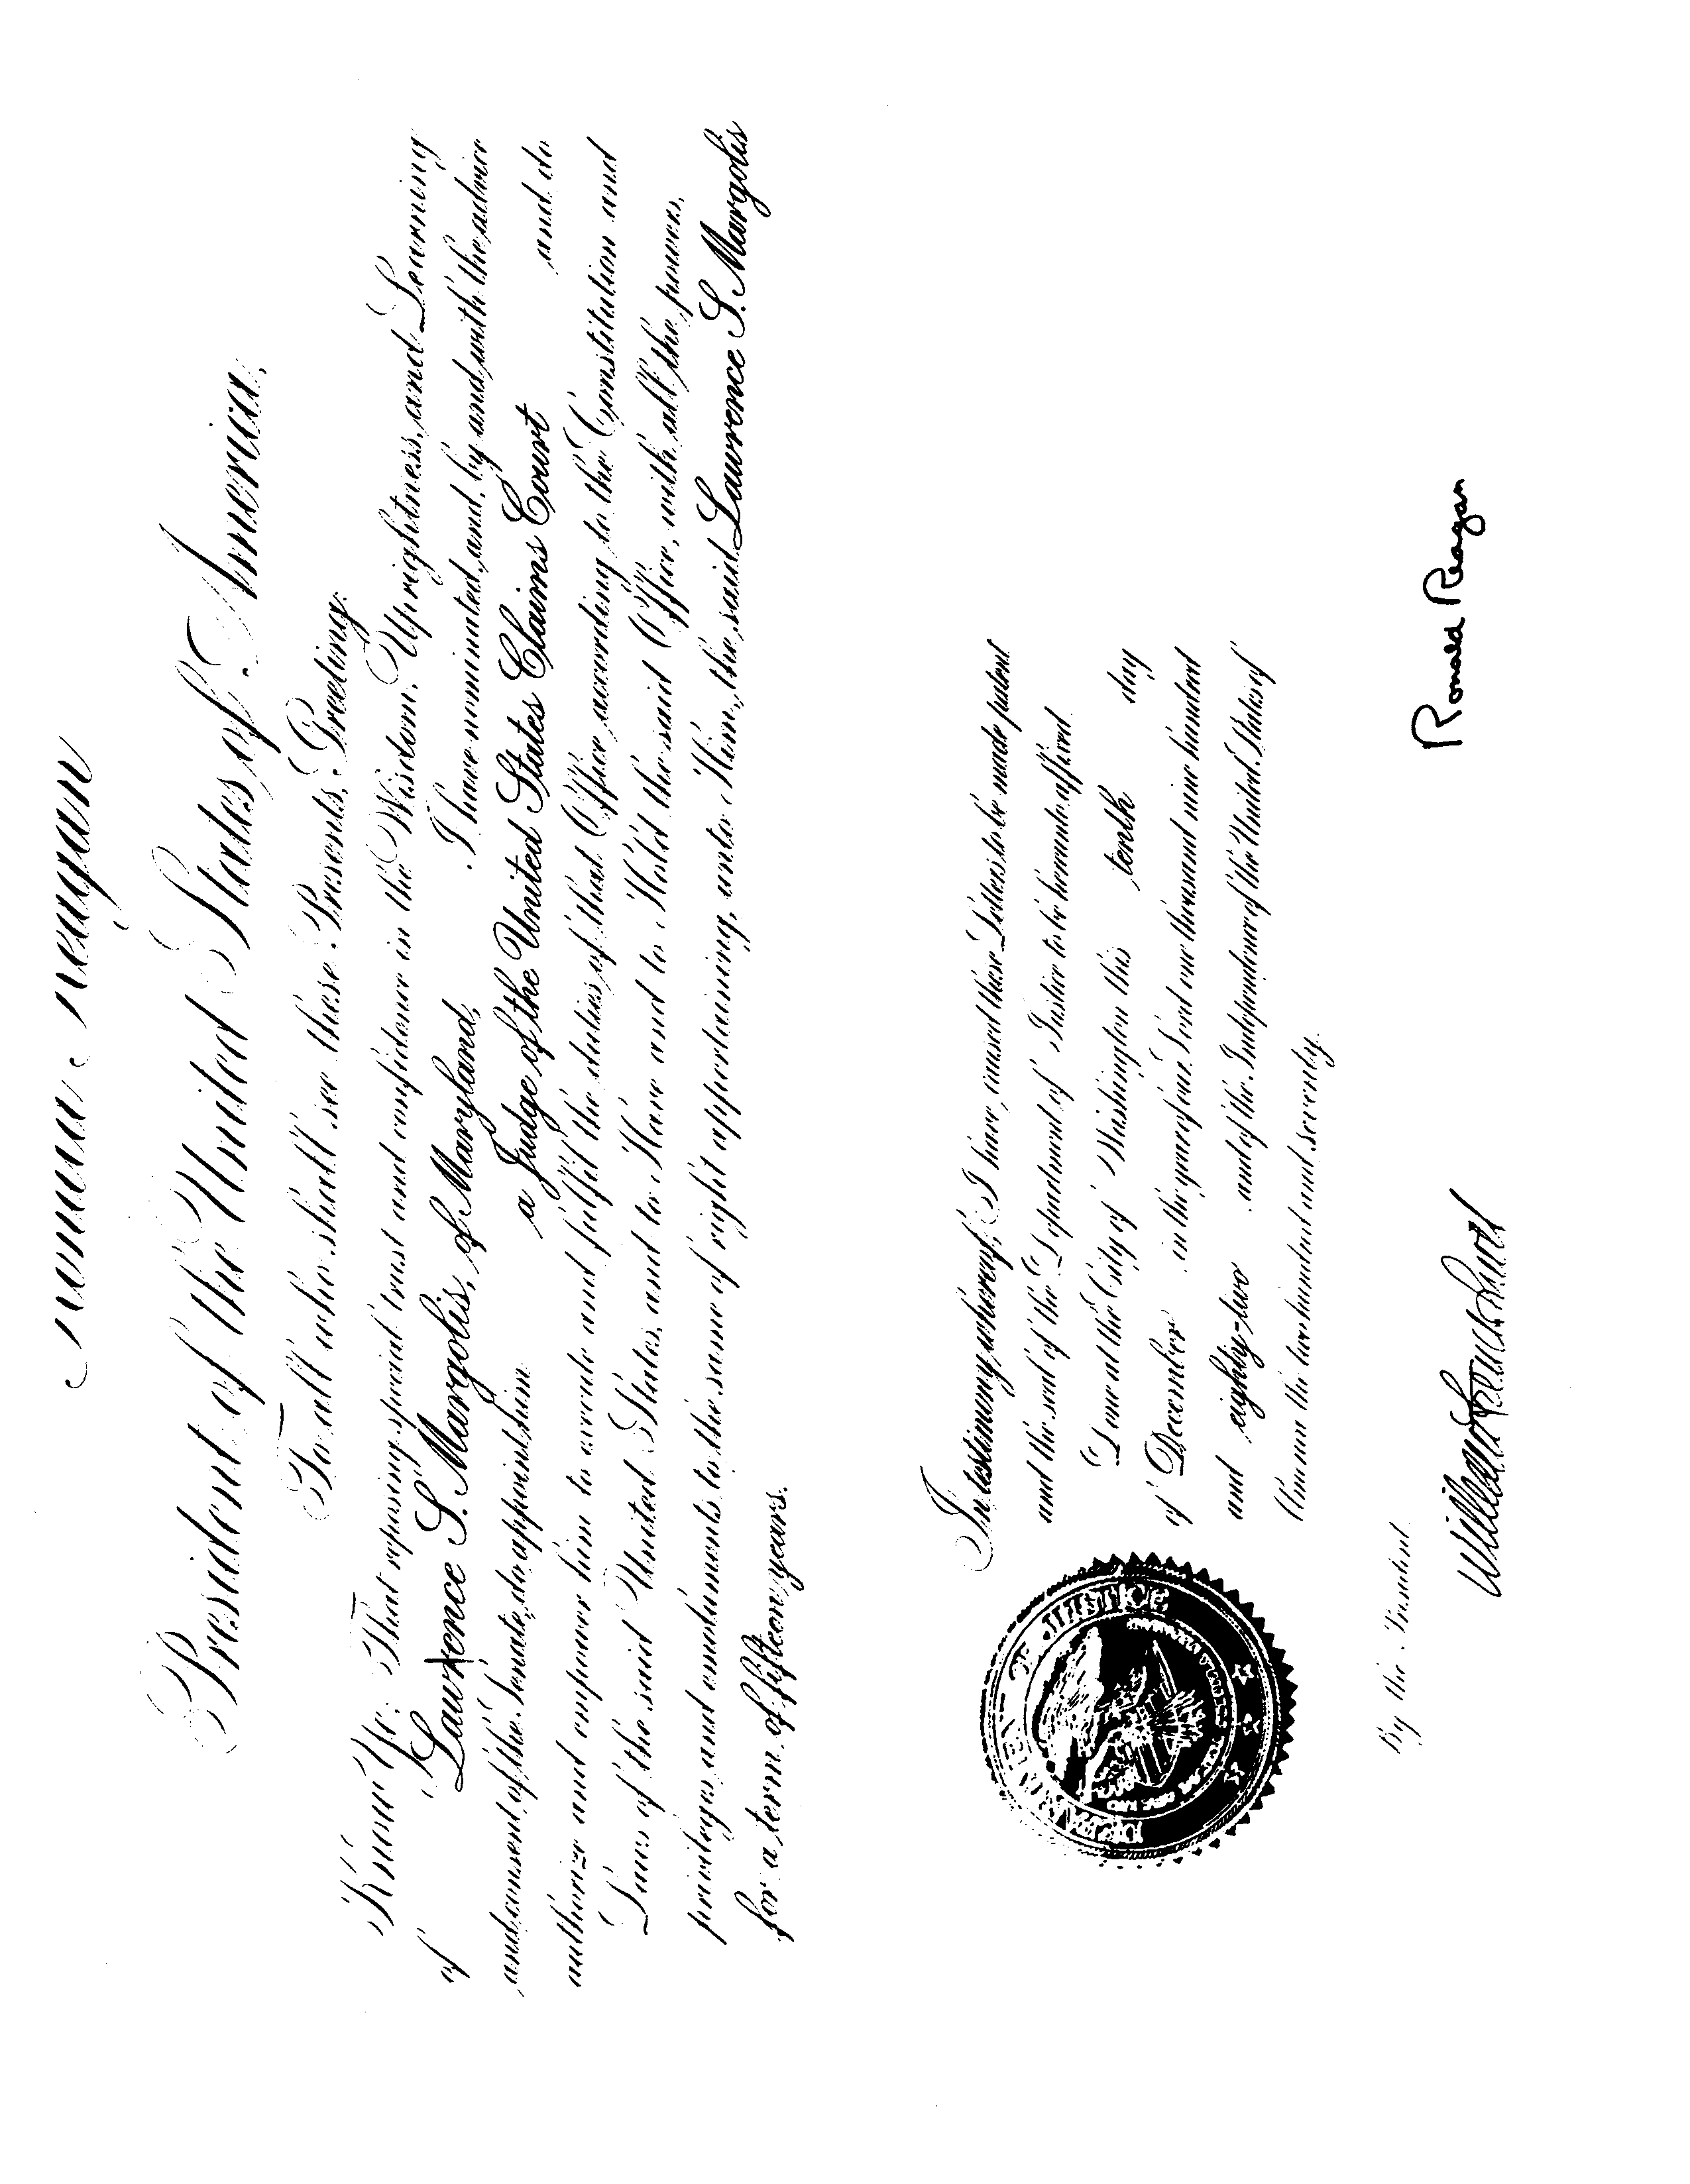 Ronald Reagan
President of the United States of America,
To all who shall see these Presents, Greeting:
Know Ye; That reposing special trust and confidence in the Wisdom, Uprightness, and Learning
of Lawrence S. Margolis, of Maryland, I have nominated, and, by and with the advice
and consent of the Senate, do appoint him a Judge of the United States Claims Court and do
authorize and empower him to execute and fulfil the duties of that Office according to the Constitution and
Laws of the said United States, and to Have and to Hold the said Office, with all the powers,
privileges and emoluments to the same of right appertaining, unto Him, the said Lawrence S. Margolis
for a term of fifteen years.
In testimony whereof, I have caused these Letters to be made patent
and the seal of the Department of Justice to be hereunto affixed.
Done at the City of Washington this tenth day
of December in the year of our Lord one thousand nine hundred
and eighty-two and of the Independence of the United States of
America the two hundred and seventy.
DEPARTMENT OF JUSTICE
By the President
Ronald Reagan
William French Smith